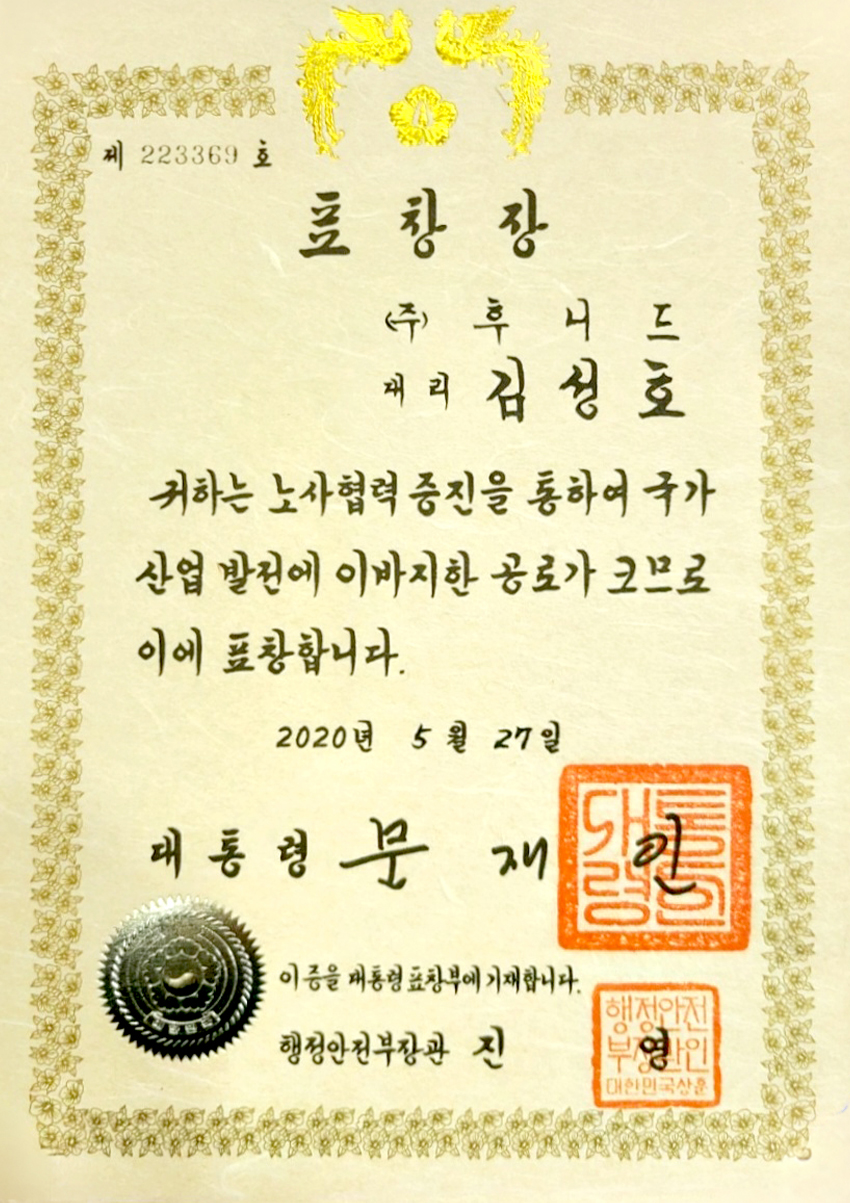 제 223369 호
표 창 장
(주) 후 니 드
대리 김 성 호
귀하는 노사협력 증진을 통하여 국가
산업 발전에 이바지한 공로가 크므로
이에 표창합니다.
2020년 5 월 27일
대 통 령 문 재 인
대통령의인
이 증을 대통령표창부에 기재합니다.
행정안전부장관 진 영
행정안전
부장관인
대한민국상훈